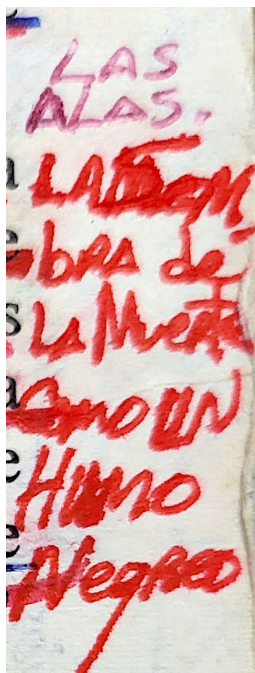 LAS
ALAS.
LA SOM
bRA de
LA MUERTE
COMO UN
HUMO
NEGRO